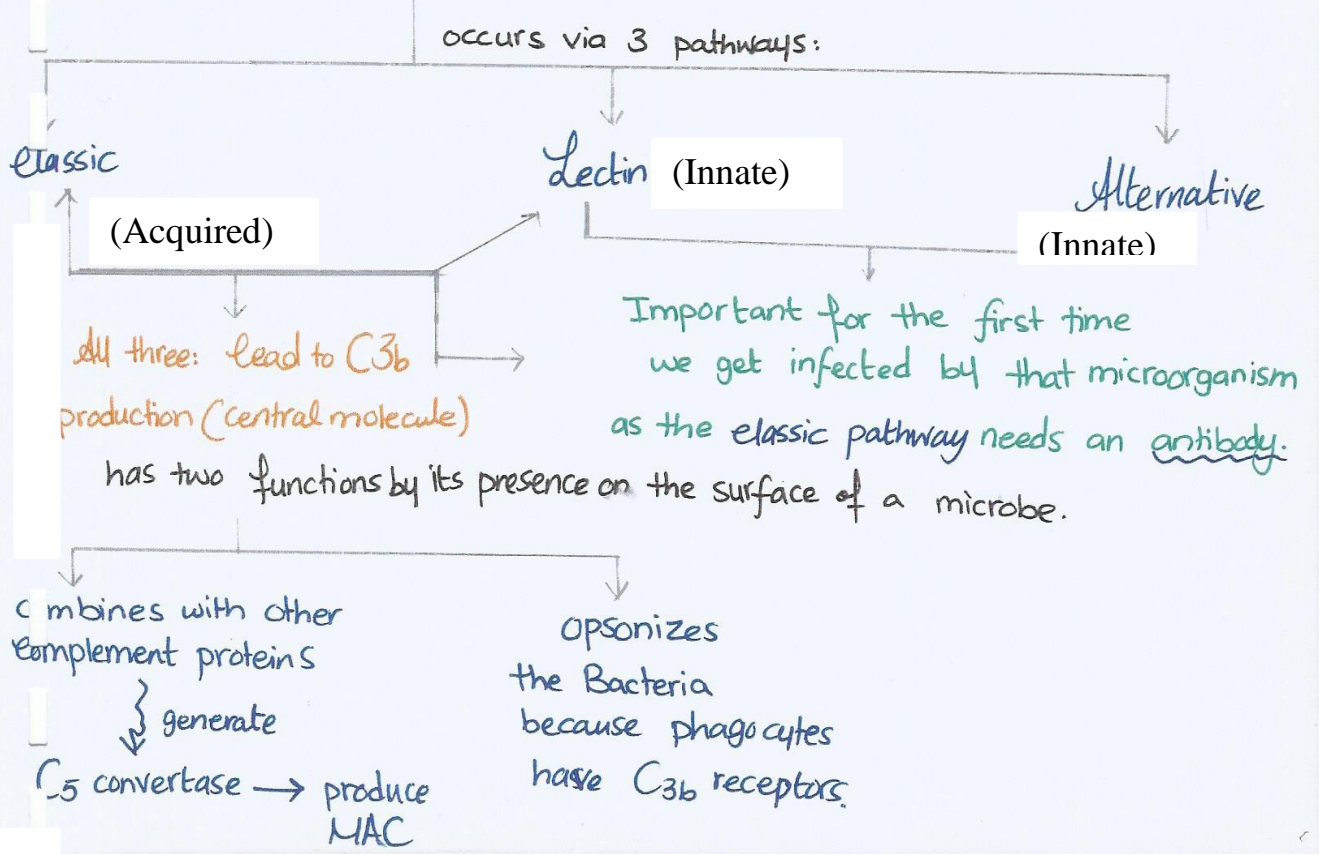 occurs via 3 pathways:
classic
Lectin (Innate)
Alternative
(Acquired)
(Innate)
All three: lead to C3b
production (central molecule)
Important for the first time
we get infected by that microorganism
as the classic pathway needs an antibody.
has two functions by its presence on the surface of a microbe.
c mbines with other
complement proteins
generate
C5 convertase → produce
MAC
opsonizes
the Bacteria
because phagocytes
have C3b receptors.